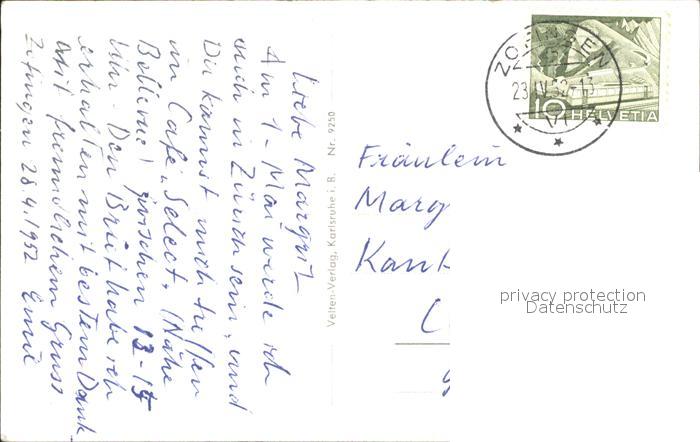 Liebe Margrit
Am 1. Mai werde ich
auch in Zürich sein, und
Du kannst mich treffen
im Café „Select“ (Nähe
Bellevue) zwischen 13-15
Uhr. Den Brief habe ich
erhalten mit bestem Dank
Mit freundlichem Gruss
Zofingen 23.4.1952
Velten-Verlag, Karlsruhe i. B. Nr. 9250
ZOFINGEN
23.IV.52-13
10 HELVETIA
Fräulein
Marg
Kant
privacy protection
Datenschutz